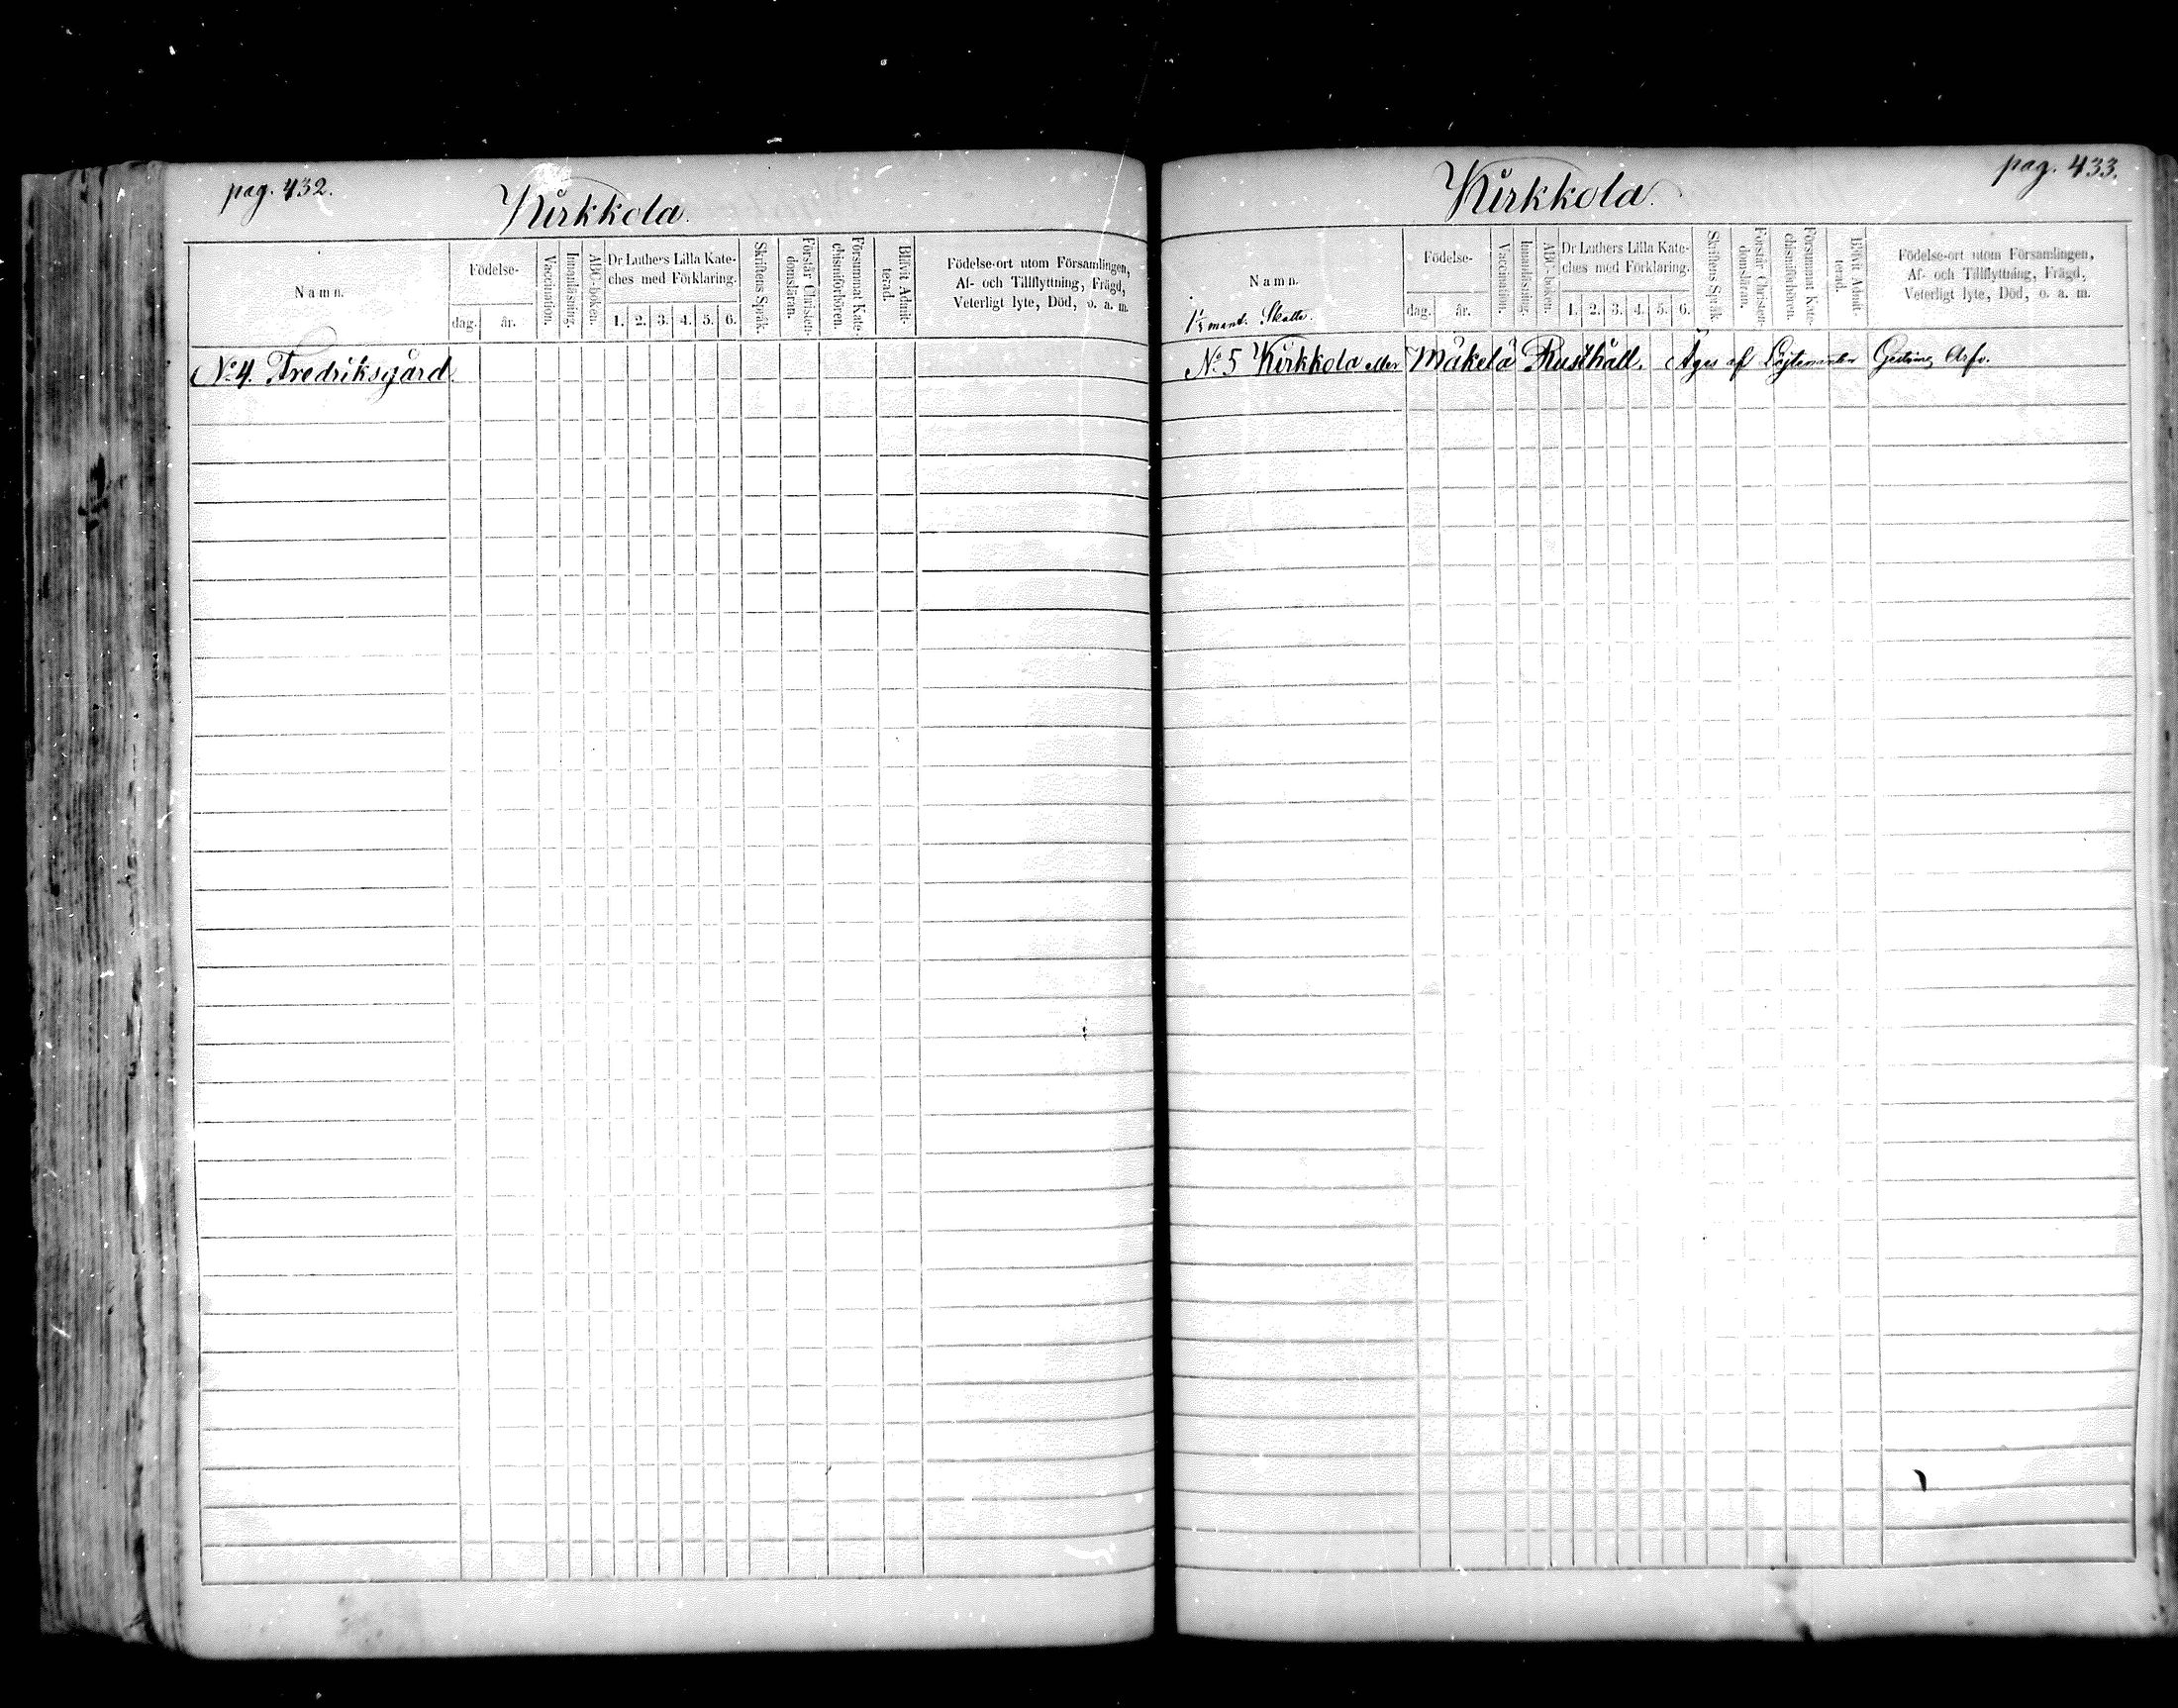 pag. 432.
Kirkkola.
Namn.
Födelse-
dag.
år.
Vaccination.
Innanläsning.
ABC-boken.
Dr Luthers Lilla Kate-
ches med Förklaring.
1. 2. 3. 4. 5. 6.
Skriftens Språk.
Förstår Christen-
domsläran.
Försummat Kate-
chismiförhören.
Blifvit Admit-
terad.
Födelse-ort utom Församlingen,
Af- och Tillflyttning, Frägd,
Veterligt lyte, Död, o. a. m.
No 4. Fredriksgård.
pag. 433.
Kirkkola.
Namn.
mant. Skatte.
Födelse-
dag.
år.
Vaccination.
Innanläsning.
ABC-boken.
Dr Luthers Lilla Kate-
ches med Förklaring.
1. 2. 3. 4. 5. 6.
Skriftens Språk.
Förstår Christen-
domsläran.
Försummat Kate-
chismiförhören.
Blifvit Admit-
terad.
Födelse-ort utom Församlingen,
Af- och Tillflyttning, Frägd,
Veterligt lyte, Död, o. a. m.
No 5 Kirkkola eller Mäkelä Rusthåll. Äges af Arfv.